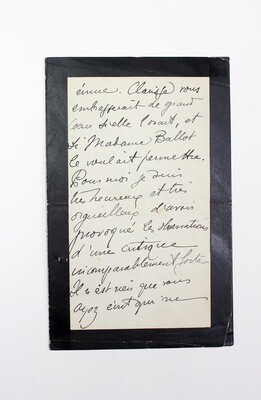 émue. Clarisse vous
embrasserait de grand
cœur si elle l'osait, et
si Madame Ballot
le voulait permettre.
Pour moi je suis
très heureux et très
orgueilleux d'avoir
provoqué les observations
d'une critique
incomparablement forte.
Il n'est rien que vous
ayez écrit qui ne